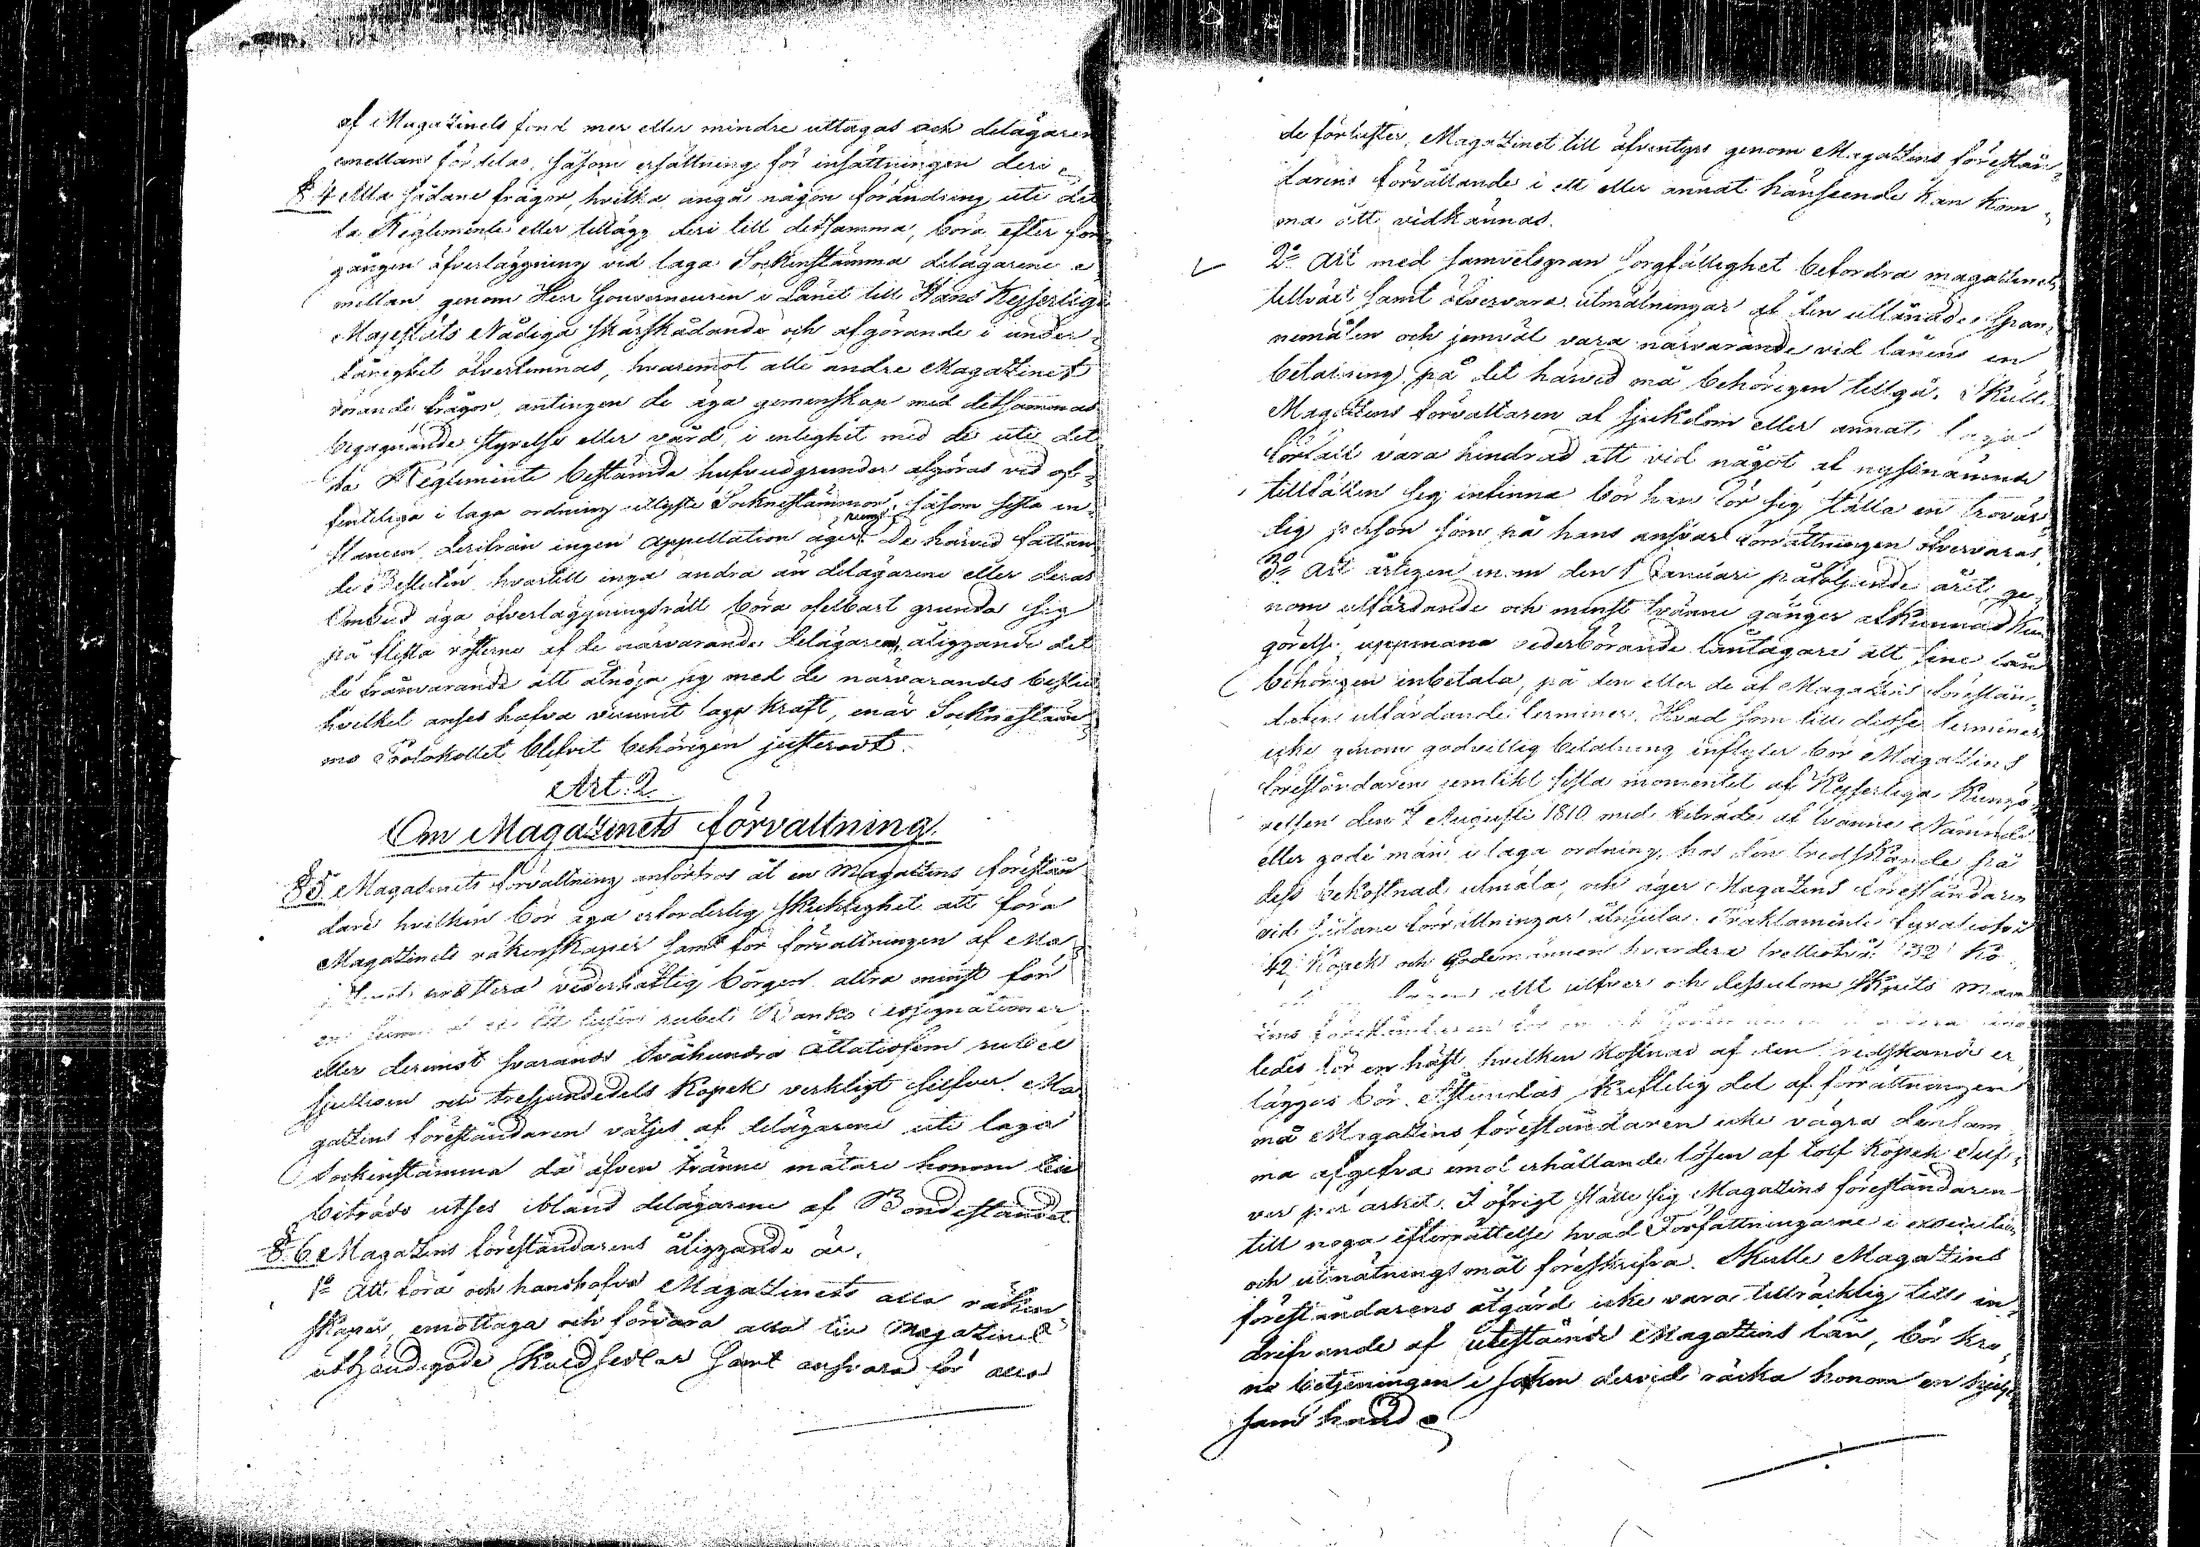 af Magazinets fond mer eller mindre uttagas och delägaren
emellan fördelas, såsom ersättning för insättningen deri
§ 4 Alla sådane frågor, hvilka angå någon förändring uti det
ta Reglemente eller tillägg deri till detsamma, böra efter före
gången öfverläggning vid laga Sockenstämma delägarene e
mellan genom Herr Gouverneuren i Länet till Hans Kejserliga
Majestäts Nådiga skärskådande och afgörande i under
dånighet öfverlemnas, hvaremot alle andre Magazinet
rörande frågor, antingen de äga gemenskap med detsammas
begagnande styrelse eller vård, i enlighet med de uti det
ta Reglemente bestämda hufvudgrunder afgöras vid of-
fenteliga i laga ordning utlyste Socknestämmor, såsom sista in-
stancen, derifrån ingen appellation äger rum. De härvid fattan
de Besluten hvartill inga andra än delägarene eller deras
Ombud äga öfverläggningsrätt böra ofelbart grunda sig
på flesta rösterne af de närvarande delägaren, åliggande det
de frånvarande att åtnöja sig med de närvarandes beslut
hvilket anses hafva vunnit laga kraft, enär Socknestäm-
mo Protokollet blifvit behörigen justeradt.
Art. 2.
Om Magazinets förvaltning.
§ 5 Magazinets förvaltning anförtros åt en Magazins förestån
dare hvilken bör äga erforderlig skicklighet att föra
Magazinets räkenskaper samt för förvaltningen af Ma
prestera vederhäftig borgen allra minst för
en summa af rubel Banko assignationer
eller deremot svarande tvåhundra åttatiofem rubel
sjuttiofem och tresjundedels Kopek verkligt silfver. Ma
gazins föreståndaren väljes af delägarene uti laga
Sockenstämma då äfven tvänne mätare honom till
biträde utses ibland delägarene af Bondeståndet
§. 6 Magazins föreståndarens åliggande är.
1o Att föra och handhafva Magazinets alla räken
skaper, emottaga och förvara alla till Magazinet
uthändigade Skuldsedlar samt ansvara för alla
de förluster, Magazinet till äfventyrs genom Magazins förestån-
darens förvållande i ett eller annat hänseende kan kom-
ma att vidkännas.
2o Att med samvetsgran sorgfällighet befordra magazinets
tillväxt samt öfvervara utmätningar af den utlånade Span-
nemålen och jemväl vara närvarande vid lånens in
betalning på det härvid må behörigen tillgå. Skulle
Magazins förvaltaren af sjukdom eller annat laga
förfall vara hindrad att vid något af nyssnämnde
tillfällen sig infinna bör han för sig ställa en trovär-
dig person som på hans ansvar förrättningen öfvervarar,
3o Att årligen inom den 1 Januari påföljande året ge-
nom utfärdande och minst tvänne gånger afkunnad kun
görelse uppmana vederbörande låntagare att sine lån
behörigen inbetala, på den eller de af Magazins förestån-
daren utfärdande terminer. Hvad som till desse terminer
icke genom godvillig betalning inflyter bör Magazins
föreståndaren jemlikt sista momentet af Kejserliga Kungö-
relsen den 7 Augusti 1810 med biträde af tvänne Nämnde
eller gode män, i laga ordning, hos den tredskande på
dess bekostnad utmäta, och äger Magazins föreståndaren
vid sådane förrättningar åtnjuta. Traktamente fyratiotvå
42 Kopek och Godemännen hvardera trettiotvå 32 Ko
allt silfver och dessutom Skjuts Maga
zins föreståndaren för en och
ledes för en häst, hvilken kostnad af den tredskande er
läggas bör. Åstundas skriftelig del af förrättningen
må Magazins föreståndaren icke vägra densam
ma afgifva emot erhållande lösen af tolf Kopek silf-
ver per arket. I öfrigt ställe sig Magazins föreståndaren
till noga efterrättelse hvad Författningarne i executions
och utmätningsmål föreskrifva. Skulle Magazins
föreståndarens åtgärd icke vara tillräcklig till in-
drifvande af utestående Magazins lån, bör kro-
no betjeningen i Socken dervid räcka honom en hjelp-
sam hand